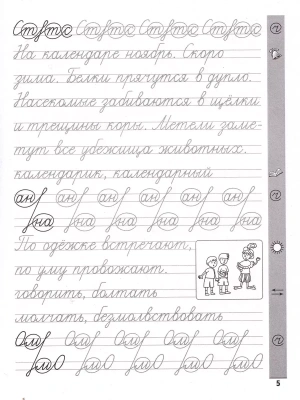 Стftx Стftx Стftx Стftx
На календаре ноябрь. Скоро
зима. Белки прячутся в дупло.
Насекомые забиваются в щёлки
и трещины коры. Метели заме-
тут все убежища животных.
календарик, календарный
ан ан ан ан ан ан
на на на на на на
По одёжке встречают,
по уму провожают.
говорить, болтать
молчать, безмолвствовать
5